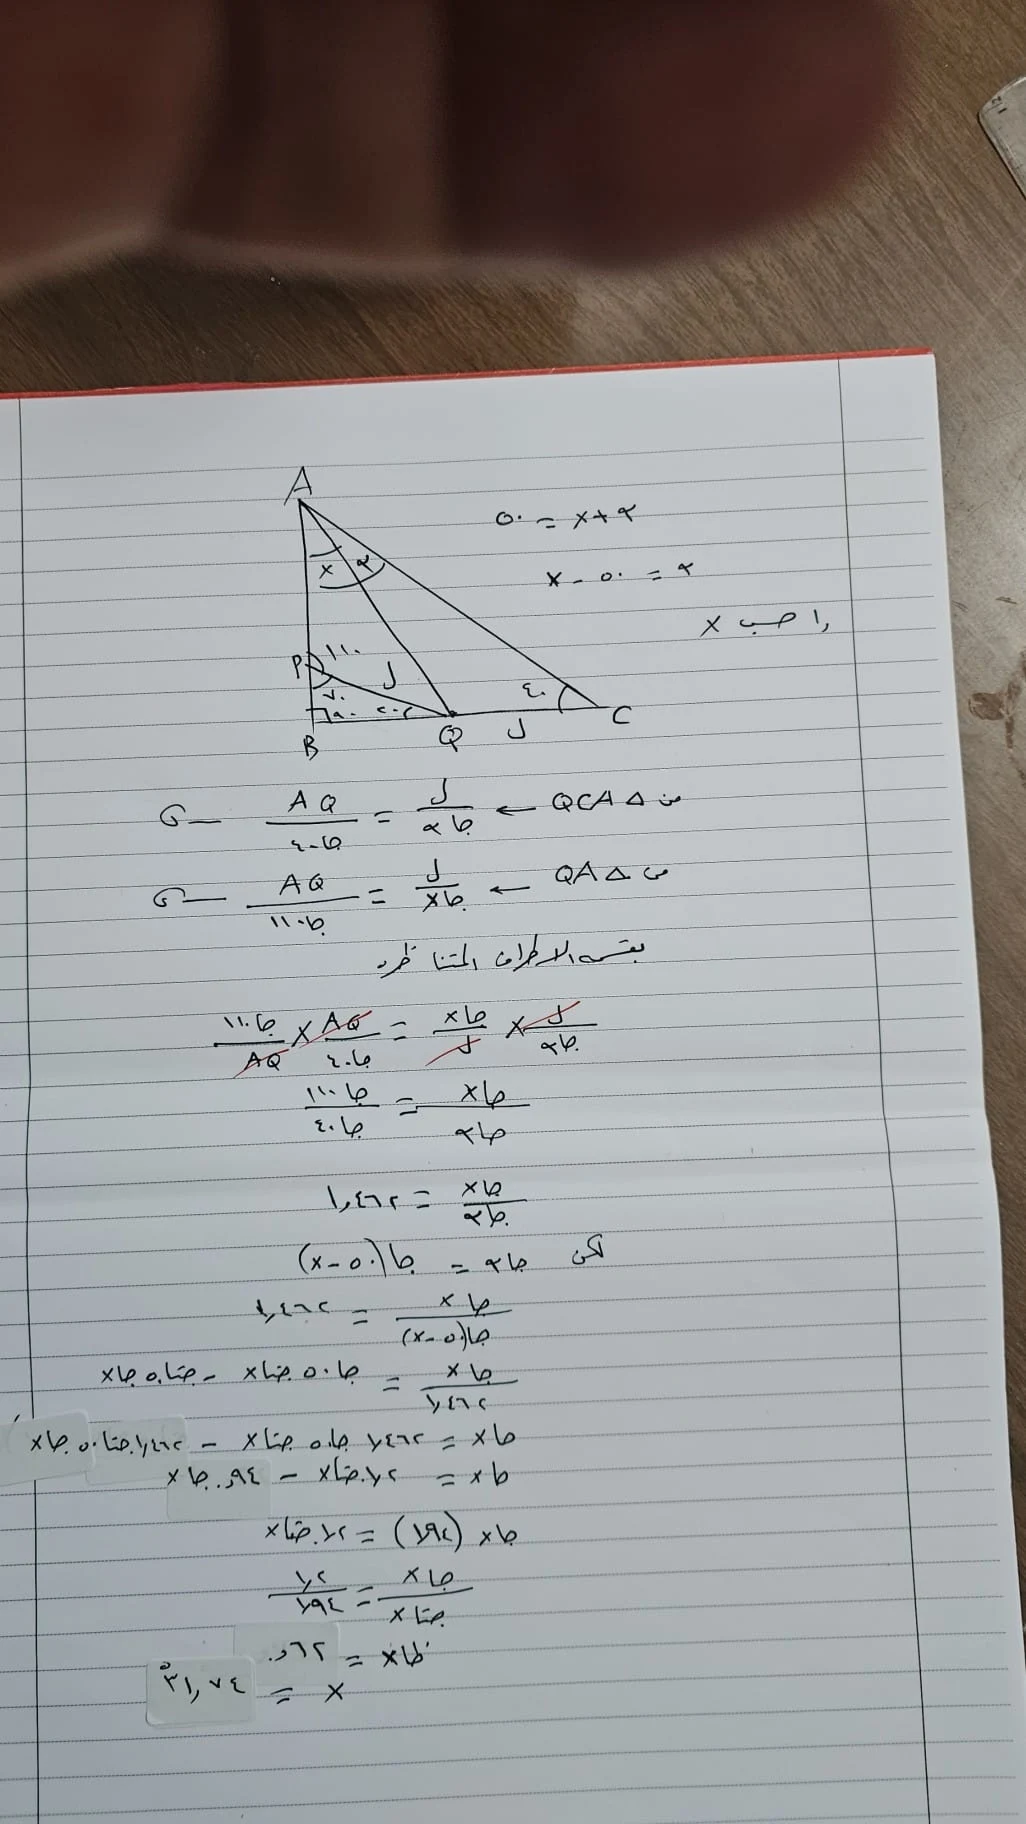 A
٥٠ = x + α
x α
α = ٥٠ - x
احسب x
P ١١٠
ل
٧٠
٩٠ ٢٠
٤٠
B Q ل C
من Δ QCA ← ل / جا α = AQ / جا ٤٠
من Δ QA ← ل / جا x = AQ / جا ١١٠
بقسمة الاطراف المتناظرة
ل / جا α × جا x / ل = AQ / جا ٤٠ × جا ١١٠ / AQ
جا x / جا α = جا ١١٠ / جا ٤٠
جا x / جا α = ١,٤٦٢
لكن جا α = جا (٥٠ - x)
جا x / جا (٥٠ - x) = ١,٤٦٢
جا x / ١,٤٦٢ = جا ٥٠ جتا x - جتا ٥٠ جا x
جا x = ١,٤٦٢ جا ٥٠ جتا x - ١,٤٦٢ جتا ٥٠ جا x
جا x = ١,٢ جتا x - ٠,٩٤ جا x
جا x (١,٩٤) = ١,٢ جتا x
جا x / جتا x = ١,٢ / ١,٩٤
ظا x = ٠,٦٢
x = ٣١,٧٤°